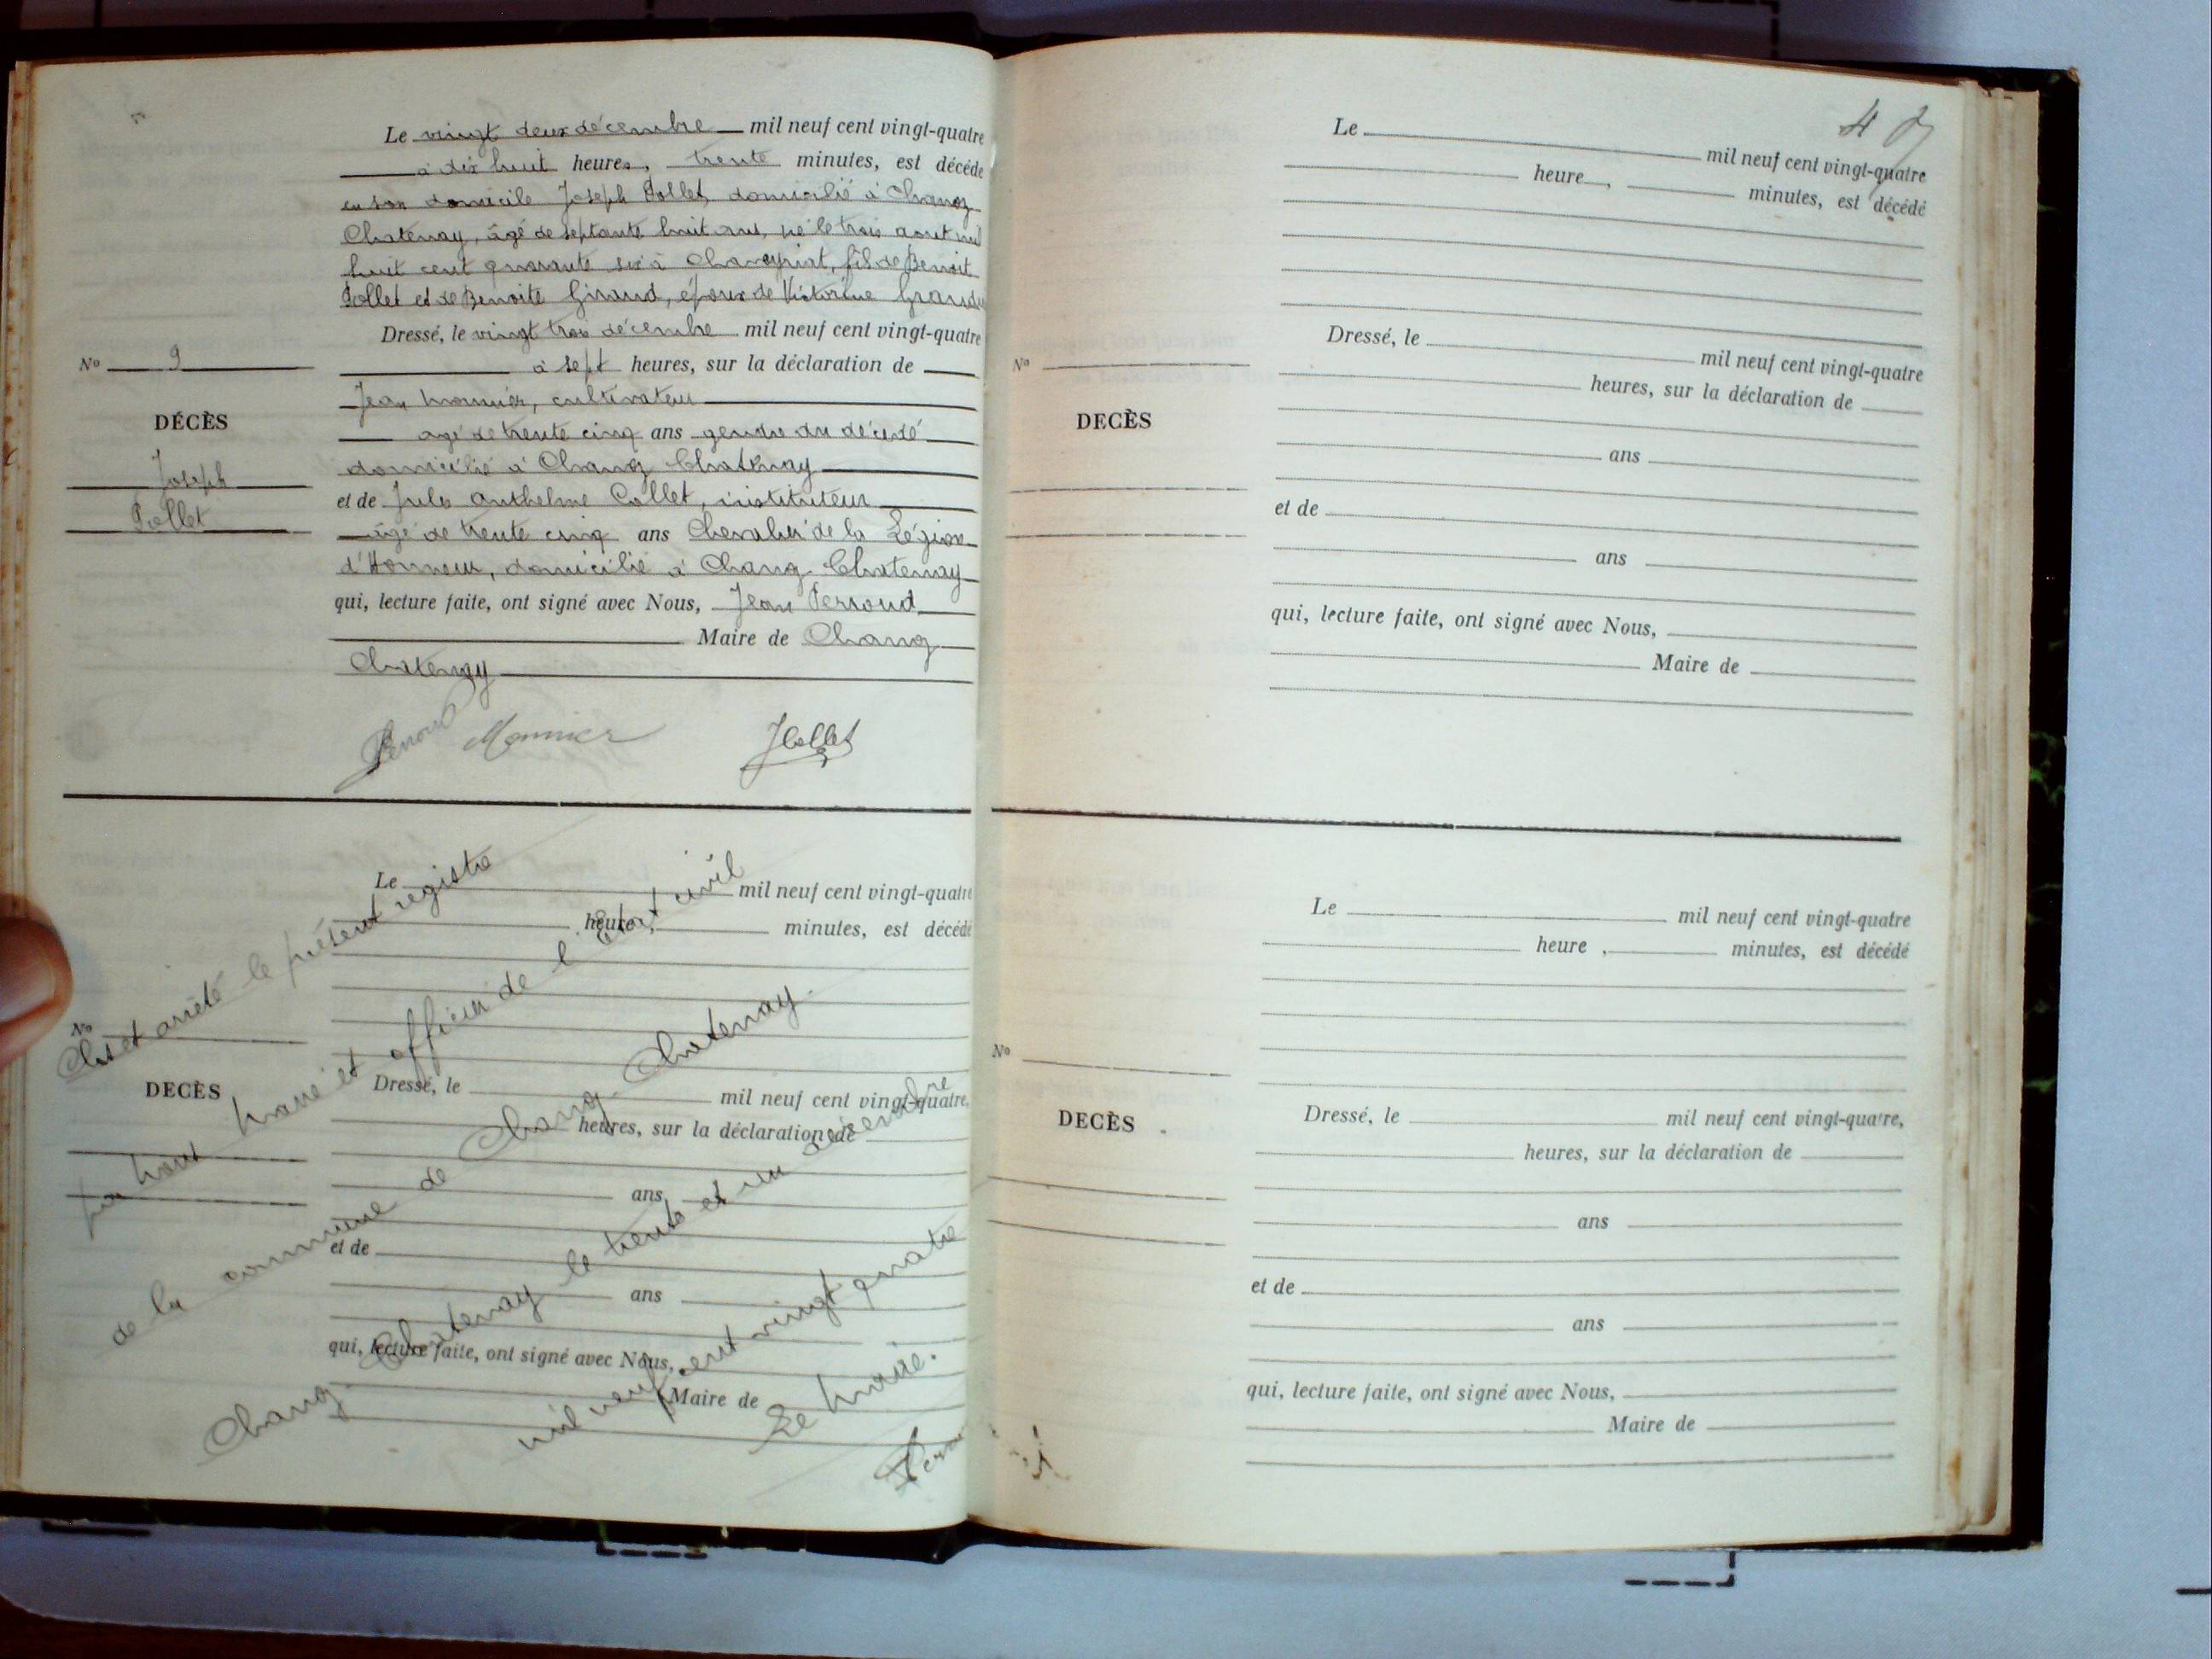 Le vingt deux décembre mil neuf cent vingt-quatre
à dix huit heures, trente minutes, est décédé
en son domicile Joseph Pollet, domicilié à Chanoz
Chatenay, âgé de septante huit ans, né le trois aout mil
huit cent quarante six à Chaveyriat, fils de Benoit
Pollet et de Benoite Giraud, époux de Victorine Grand
Dressé, le vingt trois décembre mil neuf cent vingt-quatre
No 9
à sept heures, sur la déclaration de
Jean Monnier, cultivateur
DÉCÈS
âgé de trente cinq ans gendre du décédé
domicilié à Chanoz Chatenay
Joseph
et de Jules Anthelme Collet, instituteur
Pollet
âgé de trente cinq ans Chevalier de la Légion
d'Honneur, domicilié à Chanoz Chatenay
qui, lecture faite, ont signé avec Nous, Jean Perroud
Maire de Chanoz
Chatenay
Perroud Monnier JCollet
Le mil neuf cent vingt-quatre
heure , minutes, est décédé
No
DECÈS
Dressé, le mil neuf cent vingt-quatre,
heures, sur la déclaration de
ans
et de
ans
qui, lecture faite, ont signé avec Nous,
Maire de
Clos et arrêté le présent registre
par nous maire et officier de l'Etat civil
de la commune de Chanoz-Chatenay.
Chanoz-Chatenay le trente et un décembre
mil neuf cent vingt quatre
Le maire.
4
Le mil neuf cent vingt-quatre
heure , minutes, est décédé
Dressé, le mil neuf cent vingt-quatre
No
heures, sur la déclaration de
DECÈS
ans
et de
ans
qui, lecture faite, ont signé avec Nous,
Maire de
Le mil neuf cent vingt-quatre
heure , minutes, est décédé
No
DECÈS
Dressé, le mil neuf cent vingt-quatre,
heures, sur la déclaration de
ans
et de
ans
qui, lecture faite, ont signé avec Nous,
Maire de